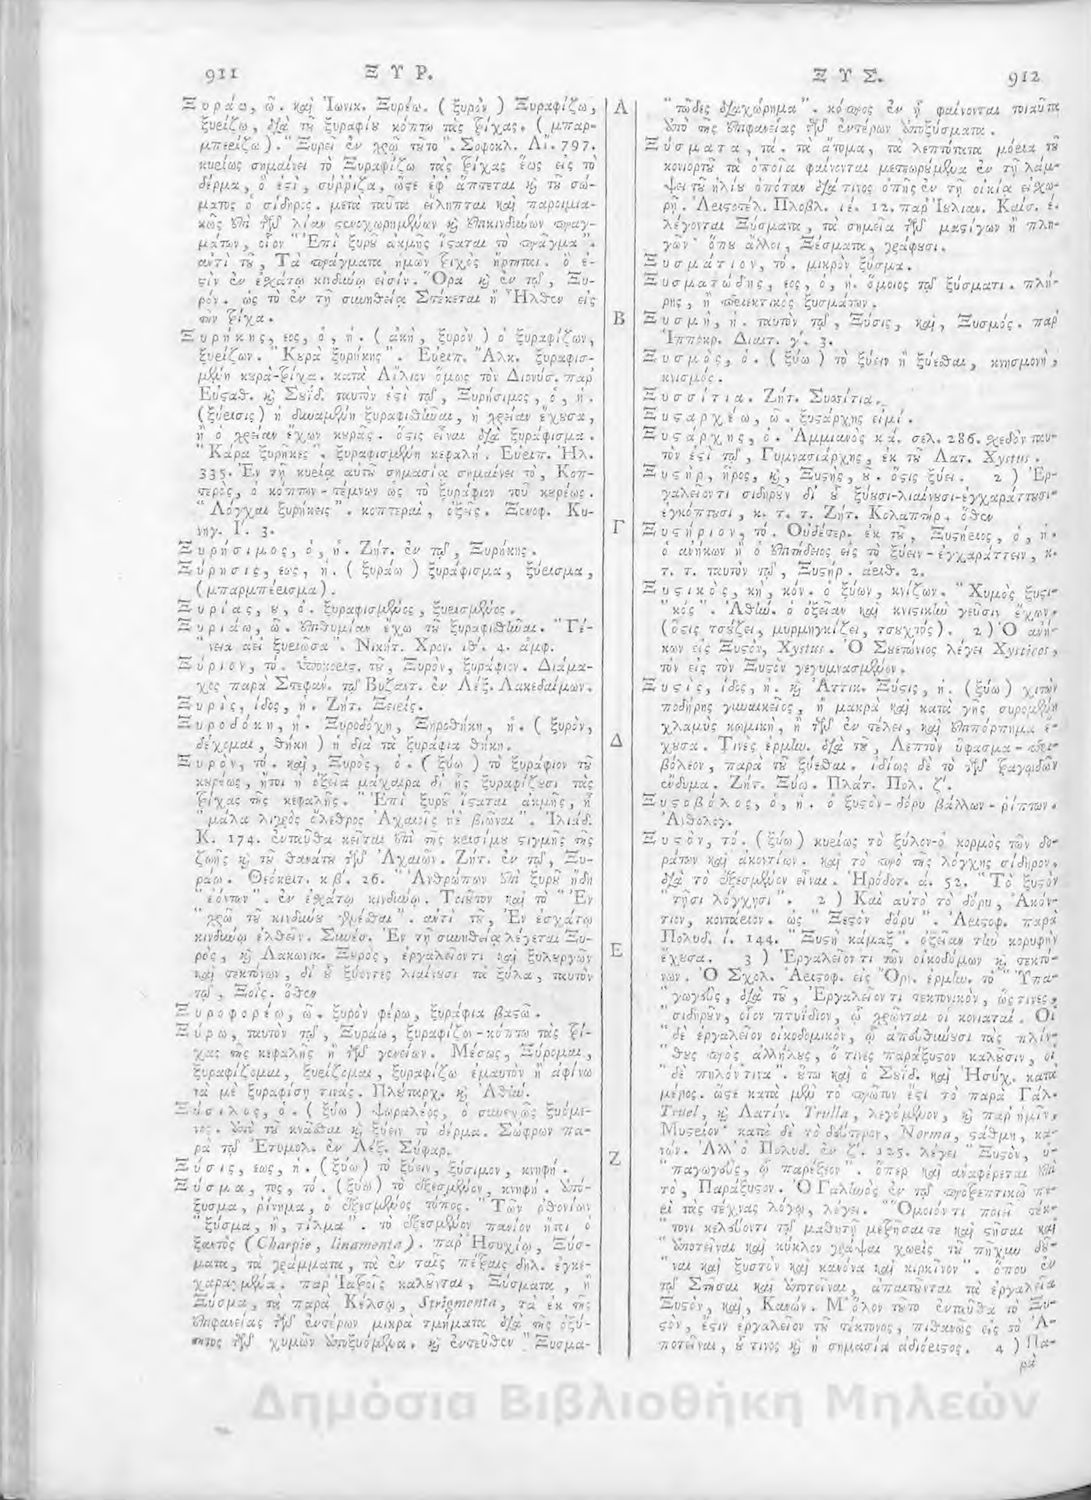 911 Ξ Υ Ρ.
Ξυράω, ῶ. καὶ Ἰωνικ. Ξυρέω. ( ξυρὸν ) Ξυραφίζω,
ξυείζω, διὰ τοῦ ξυραφίου κόπτω τὰς τρίχας. ( μπαρ-
μπερίζω ). " Ξυρεῖ ἐν χρῷ τοῦτο ". Σοφοκλ. Αἴ. 797.
κυρίως σημαίνει τὸ Ξυραφίζω τὰς τρίχας ἕως εἰς τὸ
δέρμα, ὅ ἐστι, σύρριζα, ὥστε ἐφ άπτεται καὶ τοῦ σώ-
ματος ὁ σίδηρος. μετὰ ταῦτα εἴληπται καὶ παροιμια-
κῶς ἐπὶ τῶν λίαν στενοχωρημένων καὶ ἐπικινδύνων πραγ-
μάτων, οἷον " Ἐπὶ ξυροῦ ἀκμῆς ἵσταται τὸ πρᾶγμα ".
ἀντὶ τοῦ, Τὰ πράγματα ἡμῶν τριχὸς ἤρτηται. ὅ ἐ-
στὶν ἐν ἐσχάτῳ κινδύνῳ εἰσίν. Ὅρα καὶ ἐν τῷ, Ξυ-
ρόν. ὡς τὸ ἐν τῇ συνηθείᾳ Στέκεται ἢ Ἦλθεν εἰς
τὴν τρίχα.
Ξυρήκης, εος, ὁ, ἡ. ( ἀκὴ, ξυρὸν ) ὁ ξυραφίζων,
ξυείζων. " Κουρᾷ ξυρήκης ". Εὐριπ. Ἄλκ. ξυραφισ-
μένη κουρὰ-τρίχα. κατὰ Αἴλιον ὅμως τὸν Διονύσ. παρ'
Εὐσταθ. καὶ Σουΐδ. ταυτόν ἐστι τῷ, Ξυρήσιμος, ὁ, ἡ.
(ξύρισις) ἡ δυναμένη ξυραφισθῆναι, ἡ χρείαν ἔχουσα,
ἢ ὁ χρείαν ἔχων κουρᾶς. ὅστις εἶναι διὰ ξυράφισμα.
" Κάρα ξυρῆκες ". ξυραφισμένη κεφαλή. Εὐριπ. Ἠλ.
335. Ἐν τῇ κυρίᾳ αὐτοῦ σημασίᾳ σημαίνει τὸ, Κοπ-
τερὸς, ὁ κόπτων - τέμνων ὡς τὸ ξυράφιον τοῦ κουρέως.
" Λόγχαι ξυρήκεις ". κοπτεραὶ, ὀξεῖς. Ξενοφ. Κυ-
νηγ. Γ. 3.
Ξυρήσιμος, ὁ, ἡ. Ζήτ. ἐν τῷ, Ξυρήκης.
Ξύρησις, εως, ἡ. ( ξυράω ) ξυράφισμα, ξύεισμα,
( μπαρμπέεισμα ).
Ξυρίας, ου, ὁ. ξυραφισμένος, ξυεισμένος.
Ξυριάω, ῶ. ἐπιθυμίαν ἔχω τοῦ ξυραφισθῆναι. " Γέ-
νεια ἀεὶ ξυριῶσα ". Νικήτ. Χρον. ιθ'. 4. ἀμφ.
Ξύριον, τό. ὑποκοριστ. τοῦ, Ξυρὸν, ξυράφιον. Διάμα-
χος παρὰ Στεφαν. τῷ Βυζαντ. ἐν Λέξ. Λακεδαίμων.
Ξυρὶς, ίδος, ἡ. Ζήτ. Ξειρίς.
Ξυροδόκη, ἡ. Ξυροδόχη, Ξηροθήκη, ἡ. ( ξυρὸν,
δέχομαι, θήκη ) ἡ διὰ τὰ ξυράφια θήκη.
Ξυρὸν, τό. καὶ, Ξυρὸς, ὁ. ( ξύω ) τὸ ξυράφιον τοῦ
κουρέως, ἤτοι ἡ ὀξεῖα μάχαιρα δι' ἧς ξυραφίζουσι τὰς
τρίχας τῆς κεφαλῆς. " Ἐπὶ ξυροῦ ἵσταται ἀκμῆς, ἢ
" μάλα λυγρὸς ὄλεθρος Ἀχαιοῖς ἠὲ βιῶναι ". Ἰλιάδ.
Κ. 174. ἐνταῦθα κεῖται ἐπὶ τῆς κρισίμου στιγμῆς τῆς
ζωῆς καὶ τοῦ θανάτου τῶν Ἀχαιῶν. Ζήτ. ἐν τῷ, Ξυ-
ράω. Θεόκριτ. κβ'. 26. " Ἀνθρώπων ἐπὶ ξυροῦ ἤδη
" ἐόντων ". ἐν ἐσχάτῳ κινδύνῳ. Τοιοῦτον καὶ τὸ " Ἐν
" χρῷ τοῦ κινδύνου γενέσθαι ". ἀντὶ τοῦ, Ἐν ἐσχάτῳ
κινδύνῳ ἐλθεῖν. Συνέσ. Ἐν τῇ συνηθείᾳ λέγεται Ξυ-
ρὸς, καὶ Λακωνικ. Ξυρὸς, ἐργαλεῖόν τι καὶ ξυλουργῶν
καὶ τεκτόνων, δι' οὗ ξύοντες λιαίνουσι τὰ ξύλα, ταυτὸν
τῷ, Ξοΐς. ὅθεν
Ξυροφορέω, ῶ. ξυρὸν φέρω, ξυράφια βαστῶ.
Ξύρω, ταυτὸν τῷ, Ξυράω, ξυραφίζω - κόπτω τὰς τρί-
χας τῆς κεφαλῆς ἢ τῶν γενείων. Μέσως, Ξύρομαι,
ξυραφίζομαι, ξυείζομαι, ξυραφίζω ἐμαυτὸν ἢ ἀφίνω
νὰ μὲ ξυραφίσῃ τινάς. Πλούταρχ. καὶ Ἀθήν.
Ξύσιλος, ὁ. ( ξύω ) ψωραλέος, ὁ συνεχῶς ξυόμε-
νος. ἀπὸ τοῦ κνᾶσθαι καὶ ξύειν τὸ δέρμα. Σώφρων πα-
ρὰ τῷ Ἐτυμολ. ἐν Λέξ. Σύφαρ.
Ξύσις, εως, ἡ. ( ξύω ) τὸ ξύειν, ξύσιμον, κνηφή.
Ξύσμα, τος, τό. ( ξύω ) τὸ ἐξεσμένον, κνηφή. ἀπό-
ξυσμα, ῥίνημα, ὁ ἐξεσμένος τύπος. " Τῶν ὀθονίων
" ξύσμα, ἢ, τίλμα ". τὸ ἐξεσμένον πανίον ἤτοι ὁ
ξαντὸς ( Charpie, linamenta ). παρ' Ἡσυχίῳ, Ξύσ-
ματα, τὰ γράμματα, τὰ ἐν ταῖς πέτραις δηλ. ἐγκε-
χαραγμένα. παρ' Ἰατροῖς καλοῦνται, Ξύσματα, ἢ
Ξύσμα, τὰ παρὰ Κέλσῳ, Strigmenta, τὰ ἐκ τῆς
ἐπιφανείας τῶν ἐντέρων μικρὰ τμήματα διὰ τῆς ὀξύ-
τητος τῶν χυμῶν ἀποξυόμενα. καὶ ἐντεῦθεν " Ξυσμα-
Α
Β
Γ
Δ
Ε
Ζ
Ξ Υ Σ. 912
" τῶδες διαχώρημα ". κόπρος ἐν ᾗ φαίνονται τοιαῦτα
ἀπὸ τῆς ἐπιφανείας τῶν ἐντέρων ἀποξύσματα.
Ξύσματα, τά. τὰ ἄτομα, τὰ λεπτότατα μόρια τοῦ
κονιορτοῦ τὰ ὁποῖα φαίνονται μετεωρούμενα ἐν τῇ λάμ-
ψει τοῦ ἡλίου ὁπόταν διά τινος ὀπῆς ἐν τῇ οἰκίᾳ εἰσχω-
ρῇ. Ἀριστοτέλ. Προβλ. ιέ. 12. παρ' Ἰουλιαν. Καίσ. έ.
λέγονται Ξύσματα, τὰ σημεῖα τῶν μαστίγων ἢ πλη-
γῶν· ὅπου ἄλλοι, Ξέσματα, γράφουσι.
Ξυσμάτιον, τό. μικρὸν ξύσμα.
Ξυσματώδης, εος, ὁ, ἡ. ὅμοιος τῷ ξύσματι. πλή-
ρης, ἢ περιεκτικὸς ξυσμάτων.
Ξυσμὴ, ἡ. ταυτὸν τῷ, Ξύσις, καὶ, Ξυσμός. παρ'
Ἱπποκρ. Διαιτ. γ'. 3.
Ξυσμὸς, ὁ. ( ξύω ) τὸ ξύειν ἢ ξύεσθαι, κνησμονὴ,
κνισμός.
Ξυσσίτια. Ζήτ. Συσσίτια.
Ξυσταρχέω, ῶ. ξυστάρχης εἰμί.
Ξυστάρχης, ὁ. Ἀμμιανὸς κά. σελ. 286. σχεδὸν ταυ-
τόν ἐστι τῷ, Γυμνασιάρχης, ἐκ τοῦ Λατ. Xystus.
Ξυστὴρ, ῆρος, καὶ, Ξυστὴς, οῦ. ὅστις ξύει. 2 ) Ἐρ-
γαλεῖόν τι σιδηροῦν δι' οὗ ξύουσι-λιαίνουσι-ἐγχαράττουσι-
ἐγκόπτουσι, κ. τ. τ. Ζήτ. Κολαπτήρ. ὅθεν
Ξυστήριον, τό. Οὐδέτερ. ἐκ τοῦ, Ξυστήριος, ὁ, ἡ.
ὁ ἀνήκων ἢ ὁ ἐπιτήδειος εἰς τὸ ξύειν - ἐγχαράττειν, κ.
τ. τ. ταυτὸν τῷ, Ξυστήρ. ἀριθ. 2.
Ξυστικὸς, κὴ, κόν. ὁ ξύων, κνίζων. " Χυμὸς ξυστι-
" κός ". Ἀθήν. ὁ ὀξεῖαν καὶ κνιστικὴν γεῦσιν ἔχων.
( ὅστις τσούζει, μυρμηγκίζει, τσουχτὸς ). 2 ) Ὁ ἀνή-
κων εἰς Ξυστὸν, Xystus. Ὁ Σουετώνιος λέγει Xysticos,
τὸν εἰς τὸν Ξυστὸν γεγυμνασμένον.
Ξυστὶς, ίδος, ἡ. καὶ Ἀττικ. Ξύστις, ἡ. ( ξύω ) χιτὼν
ποδήρης γυναικεῖος, ἢ μακρὰ καὶ κατὰ γῆς συρομένη
χλαμὺς κωμικὴ, ἢ τῶν ἐν τέλει, καὶ ἐπιπόρπημα ἔ-
χουσα. Τινὲς ἑρμην. διὰ τοῦ, Λεπτὸν ὕφασμα - περι-
βόλεον, παρὰ τοῦ ξύεσθαι. ἰδίως δὲ τὸ τῶν τραγῳδῶν
ἔνδυμα. Ζήτ. Ξύω. Πλάτ. Πολ. ζ'.
Ξυστοβόλος, ὁ, ἡ. ὁ ξυστὸν - δόρυ βάλλων - ῥίπτων.
Ἀνθολογ.
Ξυστὸν, τό. ( ξύω ) κυρίως τὸ ξύλον-ὁ κορμὸς τῶν δο-
ράτων καὶ ἀκοντίων. καὶ τὸ πρὸ τῆς λόγχης σίδηρον,
διὰ τὸ ἐξεσμένον εἶναι. Ἡρόδοτ. ά. 52. " Τὸ ξυστὸν
" τῇσι λόγχῃσι ". 2 ) Καὶ αὐτὸ τὸ δόρυ, Ἀκόν-
τιον, κοντάειον. ὡς " Ξεστὸν δόρυ ". Ἀριστοφ. παρὰ
Πολυδ. ί. 144. " Ξυστὴ κάμαξ ". ὀξεῖαν τὴν κορυφὴν
ἔχουσα. 3 ) Ἐργαλεῖόν τι τῶν οἰκοδόμων καὶ τεκτό-
νων. Ὁ Σχολ. Ἀριστοφ. εἰς Ὄρν. ἑρμην. τὸ " Ὑπα-
" γωγοὺς, διὰ τοῦ, Ἐργαλεῖόν τι τεκτονικὸν, ὥς τινες,
" σιδηροῦν, οἷον πτυίδιον, ᾧ χρῶνται οἱ κονιαταί. Οἱ
" δὲ ἐργαλεῖον οἰκοδομικὸν, ᾧ ἀπευθύνουσι τὰς πλίν-
" θους πρὸς ἀλλήλους, ὅ τινες παράξυστον καλοῦσιν, οἱ
" δὲ πηλόν τινα ". οὕτω καὶ ὁ Σουΐδ. καὶ Ἡσύχ. κατὰ
μέρος. ὥστε κατὰ μὲν τὸ πρῶτόν ἐστι τὸ παρὰ Γάλ.
Truel, καὶ Λατίν. Trulla, λεγόμενον, καὶ παρ' ἡμῖν,
Μυστρίον· κατὰ δὲ τὸ δεύτερον, Norma, στάθμη, κα-
νών. Ἀλλ' ὁ Πολυδ. ἐν ζ'. 125. λέγει " Ξυστὸν, ὑ-
" παγωγοὺς, ᾧ παρέξεον ". ὅπερ καὶ ἀναφέρεται ἐπὶ
τὸ, Παράξυστον. Ὁ Γαλῖνὸς ἐν τῷ προτρεπτικῷ πε-
ρὶ τὰς τέχνας λόγῳ, λέγει. " Ὅμοιόν τι ποιεῖ τέκ-
" τονι κελεύοντι τῷ μαθητῇ μετρῆσαί τε καὶ στῆσαι καὶ
" ἀποτεῖναι καὶ κύκλον γράψαι χωρὶς τοῦ πῆχυν δοῦ-
" ναι καὶ ξυστὸν καὶ κανόνα καὶ κιρκῖνον ". ὅπου ἐν
τῷ Στῆσαι καὶ ἀποτεῖναι, ἀπαιτοῦνται τὰ ἐργαλεῖα
Ξυστὸν, καὶ, Κανών. Μ' ὅλον τοῦτο ἐνταῦθα τὸ Ξυ-
στὸν, ἔστιν ἐργαλεῖον τοῦ τέκτονος, πιθανῶς εἰς τὸ Ἀ-
ποτεῖναι, οὗ τινος καὶ ἡ σημασία ἀδιόριστος. 4 ) Πα-
ρὰ
Δημόσια Βιβλιοθήκη Μηλεών